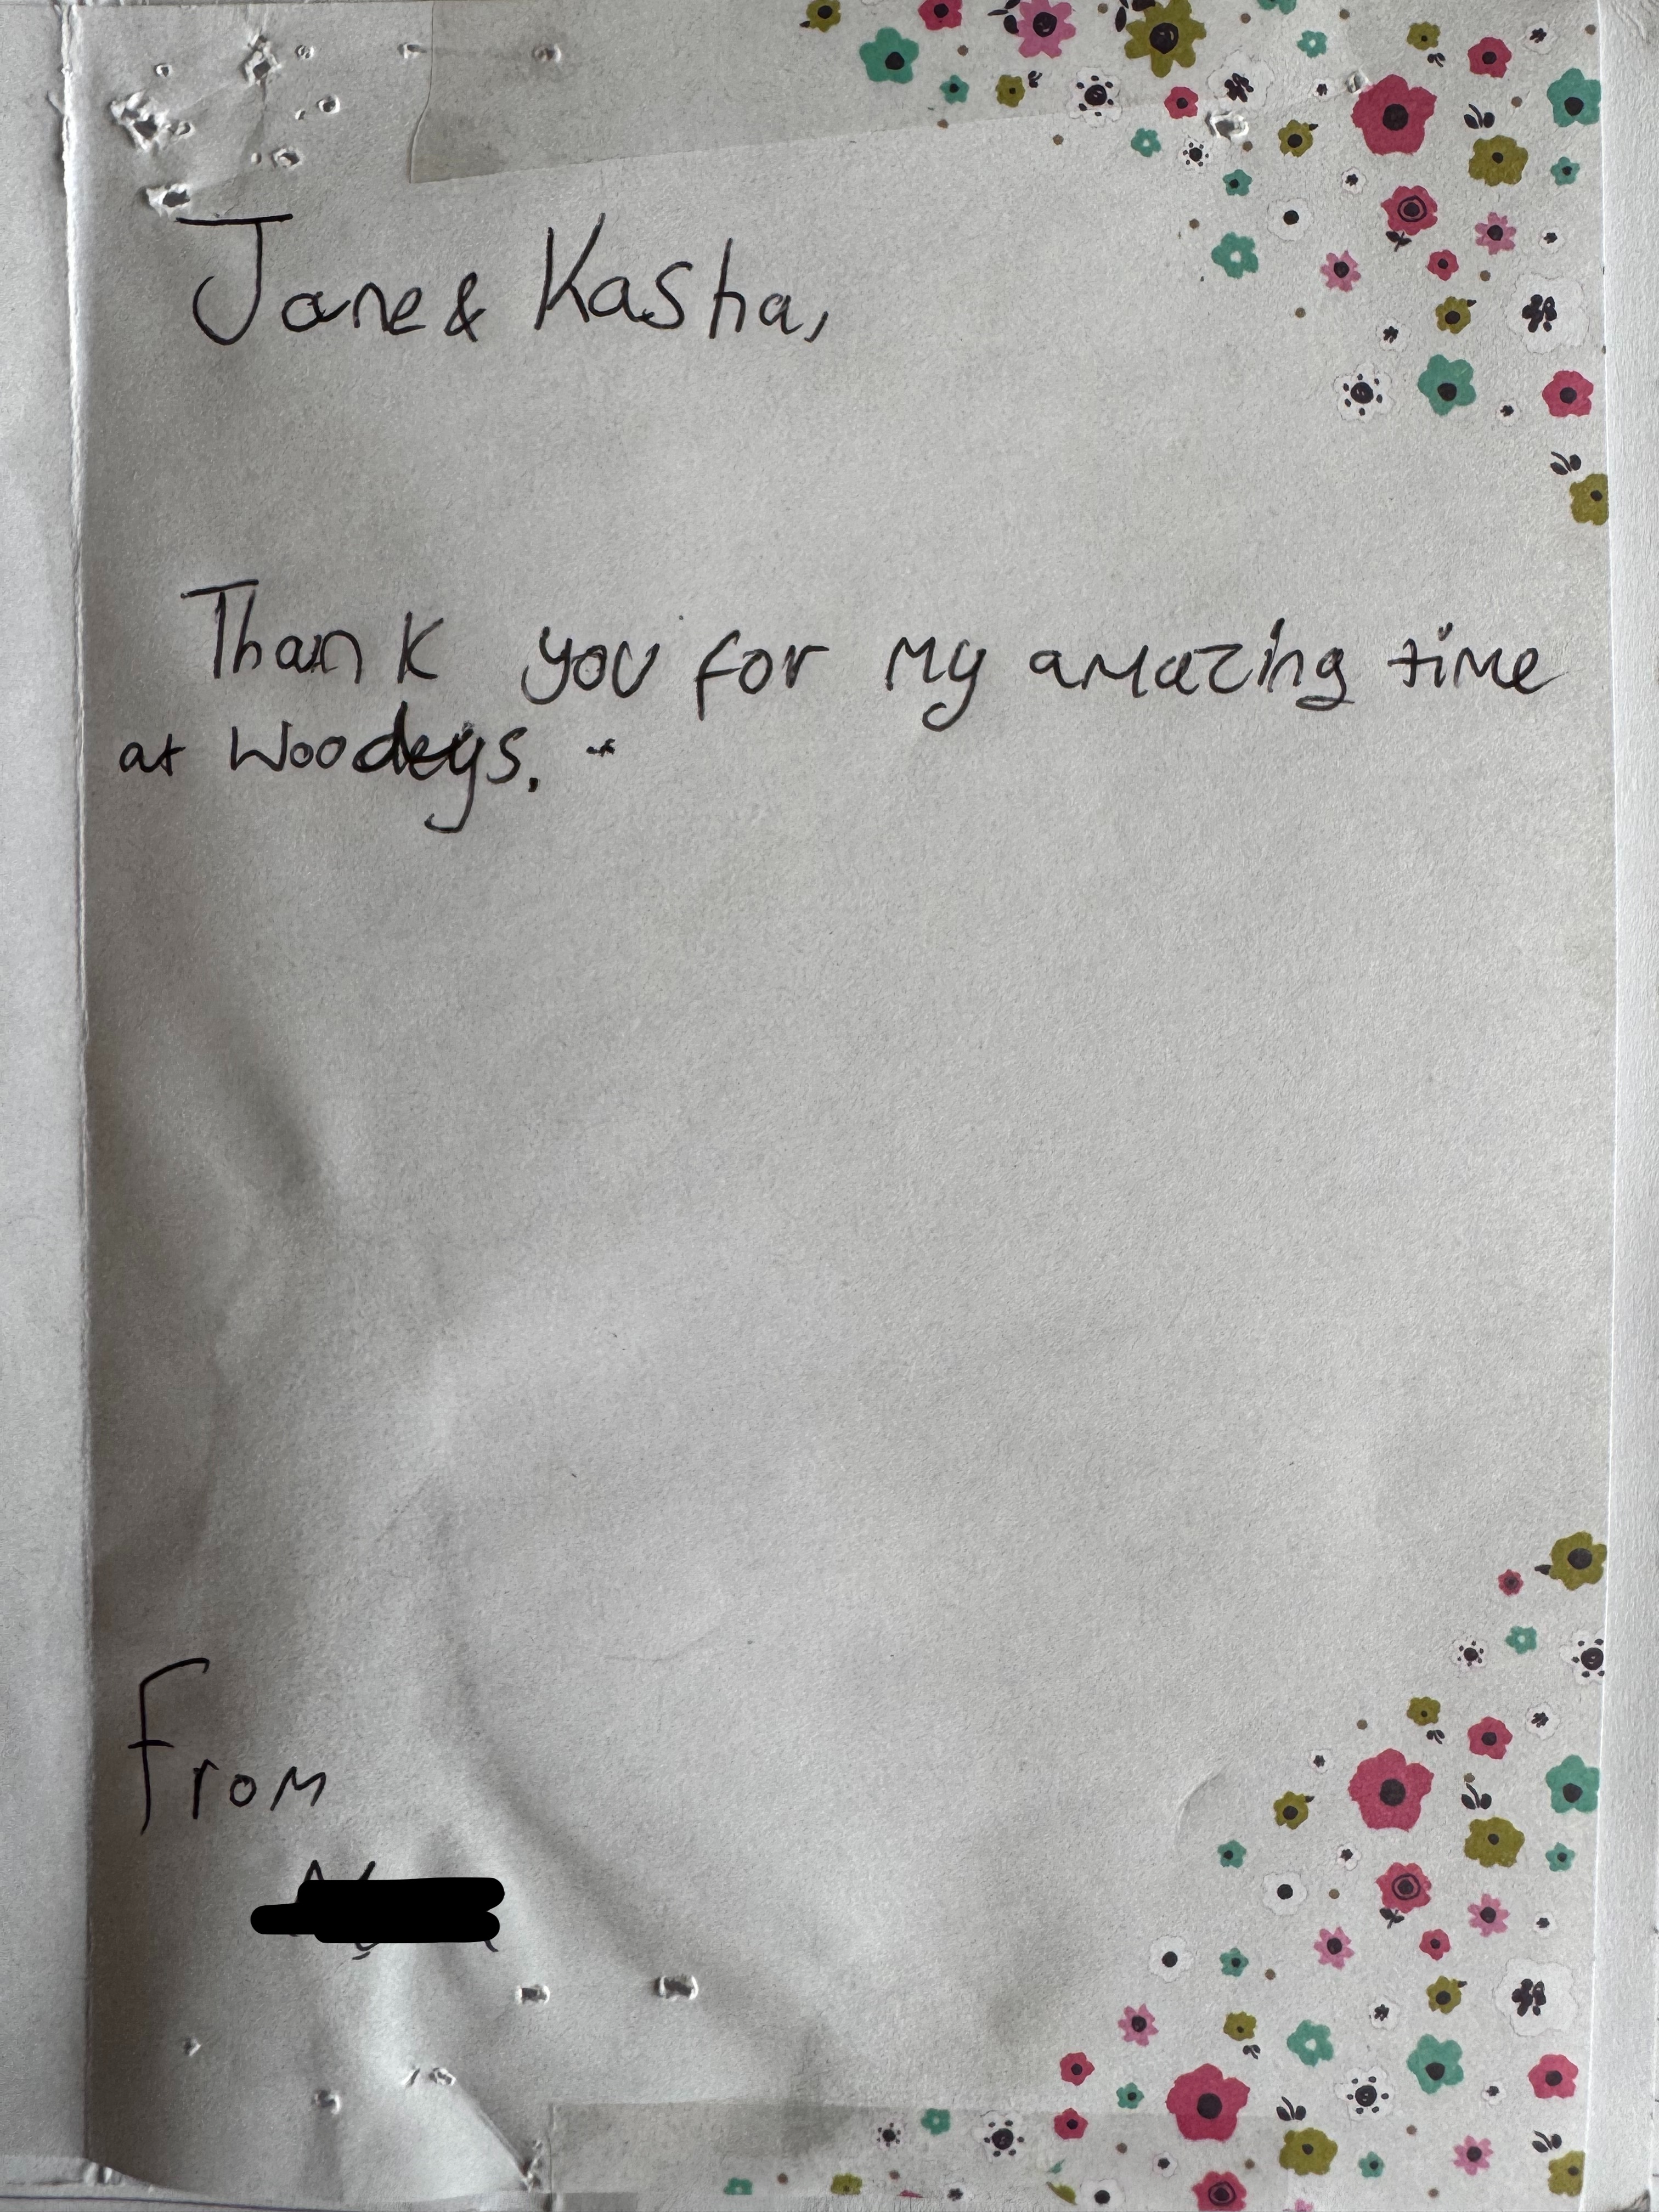 Jane & Kasha,
Thank you for my amazing time
at Woodeys.
From